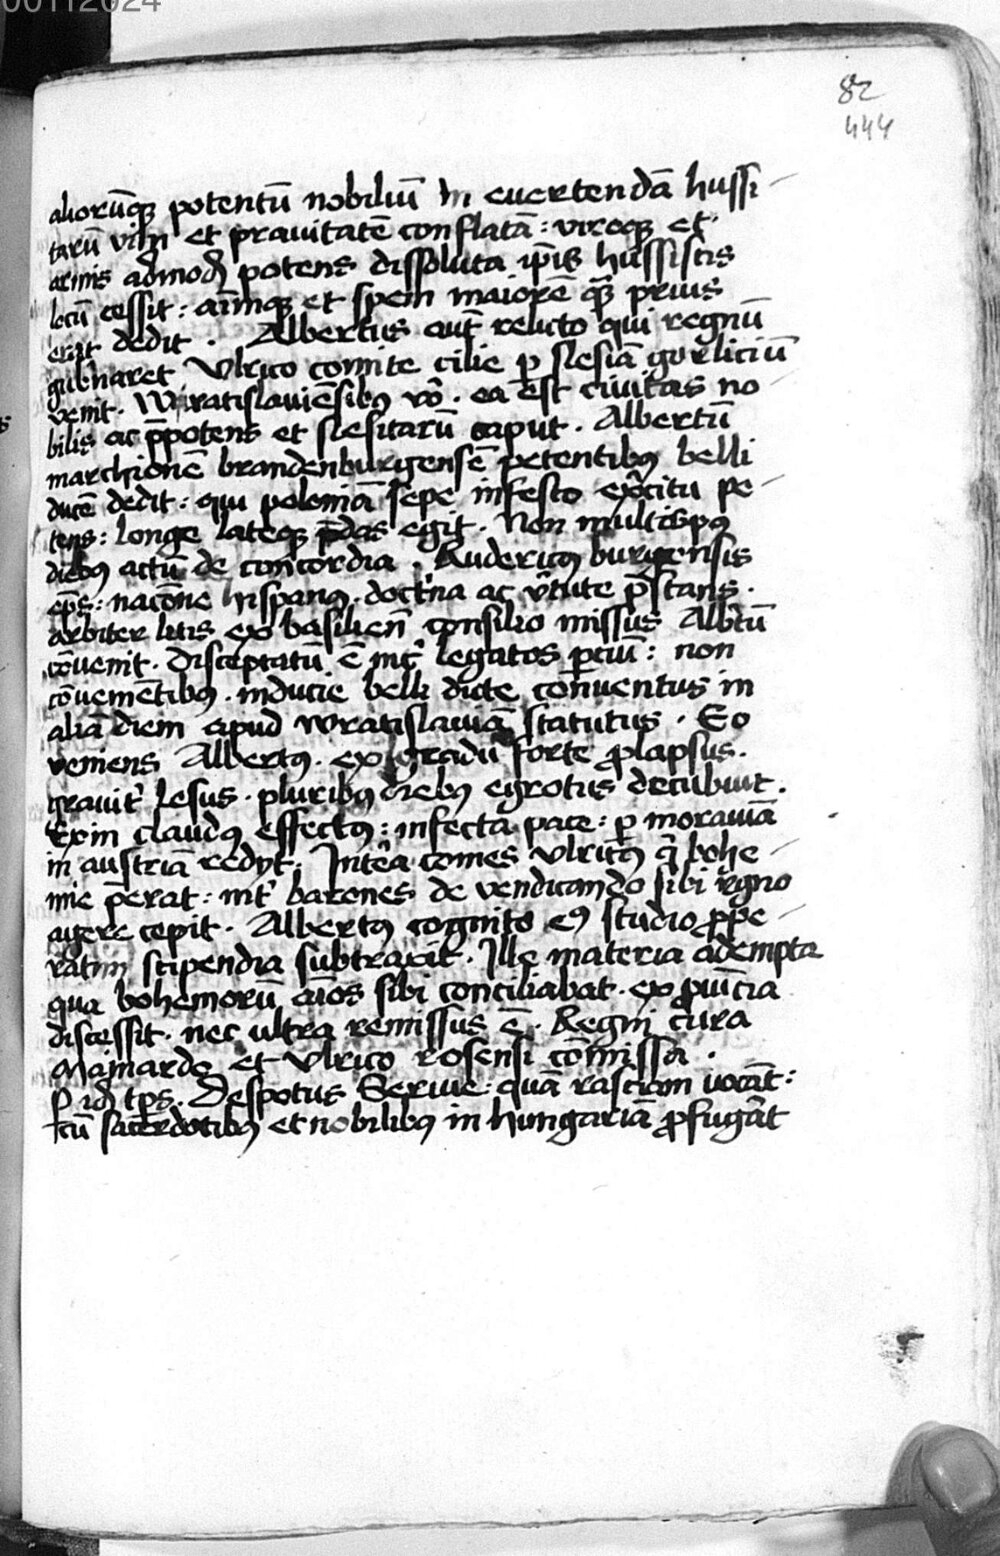 00112024
82
444
aliorūqꝫ potentū nobiliū in euertendā hussi-
tarū vim et prauitatē conflatā : viroqꝫ et
armis admodꝫ potens dissoluta ip̄is hussistis
locū cessit : aīmqꝫ et spem maiorē qꝫ̄ prius
erat dedit . Albertus aut̄ relicto qui regnū
gub̄naret Vlrico comite cilie ꝑ slesiā gorliciū
venit . Wratislauiēsibꝫ v̄o . ea est ciuitas no-
bilis ac p̄potens et slesitarū caput . Albertū
marchionē brandenburgensē petentibꝫ belli
ducē dedit : qui poloniā sepe infesto ex̄citu pe-
tens : longe lateqꝫ p̄das egit . Non multisqꝫ
diebꝫ actū de concordia . Rudericꝰ burgensis
ep̄s : nacōne hispanꝰ . doct̓na ac v̓tute p̄stans .
arbiter litis ex basilien̄ consilio missus Alb̄tū
cōuenit . disceptatū ē int̓ legatos ꝑciū : non
cōuenientibꝫ . inducie belli dicte conuentus in
aliā diem apud wratislauiā statutus . Eo
veniens Albertꝰ . ex gradū forte ꝓlapsus .
grauit̓ lesus . pluribꝫ diebꝫ egrotus decubuit .
Exin claudꝰ effectꝰ : infecta pace : ꝑ morauiā
in austriā redyt . Int̓ea comes vlricꝰ q̇ bohe-
mie p̄erat : int̓ barones de vendicando sibi r̄gno
agere cepit . Albertꝰ cognito eꝰ studio ꝓpe-
ratim stipendia subtraxit . Ille materia adempta
qua bohemorū aīos sibi conciliabat . ex ꝓuīcia
discessit . nec ultra remissus ē . Regni cura
Mainardo et Vlrico rosensi cōmissa .
ꝑ id tp̄s . Despotus Seruie : quā rasciam vocāt :
cū sacerdotibꝫ et nobilibꝫ in hungariā ꝓfugāt